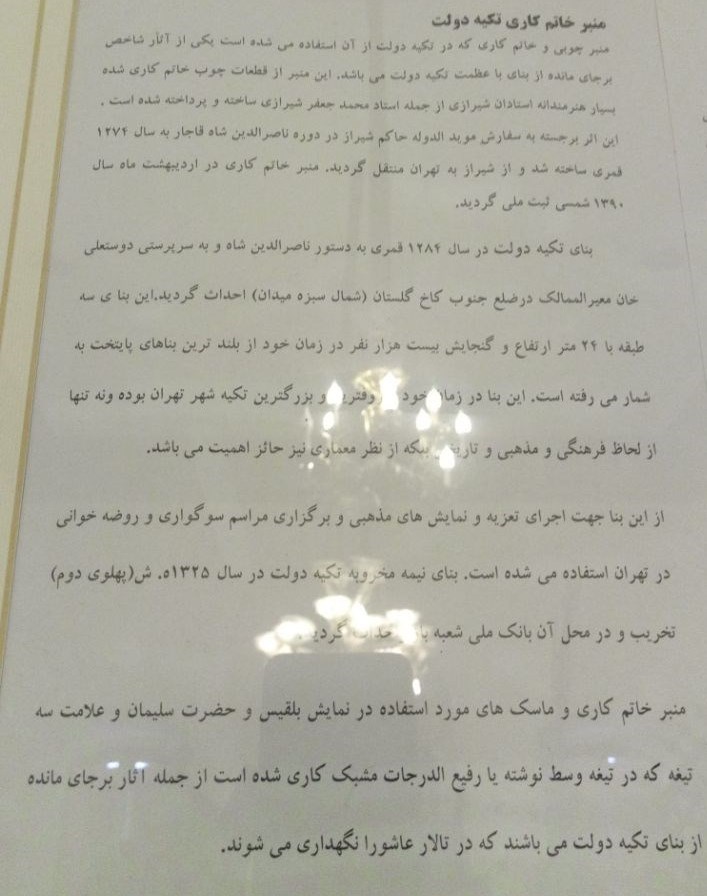 منبر خاتم کاری تکیه دولت
منبر چوبی و خاتم کاری که در تکیه دولت از آن استفاده می شده است یکی از آثار شاخص
برجای مانده از بنای با عظمت تکیه دولت می باشد. این منبر از قطعات چوب خاتم کاری شده
بسیار هنرمندانه استادان شیرازی از جمله استاد محمد جعفر شیرازی ساخته و پرداخته شده است .
این اثر برجسته به سفارش موید الدوله حاکم شیراز در دوره ناصرالدین شاه قاجار به سال ۱۲۷۴
قمری ساخته شد و از شیراز به تهران منتقل گردید. منبر خاتم کاری در اردیبهشت ماه سال
۱۳۹۰ شمسی ثبت ملی گردید.
بنای تکیه دولت در سال ۱۲۸۴ قمری به دستور ناصرالدین شاه و به سرپرستی دوستعلی
خان معیرالممالک درضلع جنوب کاخ گلستان (شمال سبزه میدان) احداث گردید.این بنا ی سه
طبقه با ۲۴ متر ارتفاع و گنجایش بیست هزار نفر در زمان خود از بلند ترین بناهای پایتخت به
شمار می رفته است. این بنا در زمان خود و بزرگترین تکیه شهر تهران بوده ونه تنها
از لحاظ فرهنگی و مذهبی و بلکه از نظر معماری نیز حائز اهمیت می باشد.
از این بنا جهت اجرای تعزیه و نمایش های مذهبی و برگزاری مراسم سوگواری و روضه خوانی
در تهران استفاده می شده است. بنای نیمه مخروبه تکیه دولت در سال ۱۳۲۵ه. ش(پهلوی دوم)
تخریب و در محل آن بانک ملی شعبه گردید .
منبر خاتم کاری و ماسک های مورد استفاده در نمایش بلقیس و حضرت سلیمان و علامت سه
تیغه که در تیغه وسط نوشته یا رفیع الدرجات مشبک کاری شده است از جمله آثار برجای مانده
از بنای تکیه دولت می باشند که در تالار عاشورا نگهداری می شوند.